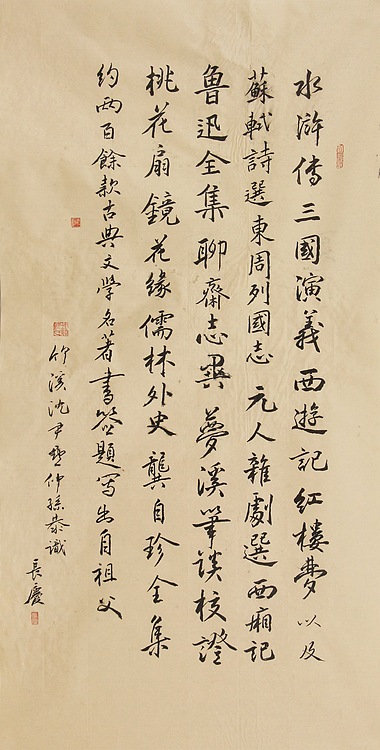 水滸傳三國演義西遊記紅樓夢以及
蘇軾詩選東周列國志元人雜劇選西廂記
魯迅全集聊齋志異夢溪筆談校證
桃花扇鏡花緣儒林外史龔自珍全集
約兩百餘款古典文學名著書簽題寫出自祖父
竹溪沈尹默仲孫恭識
長慶